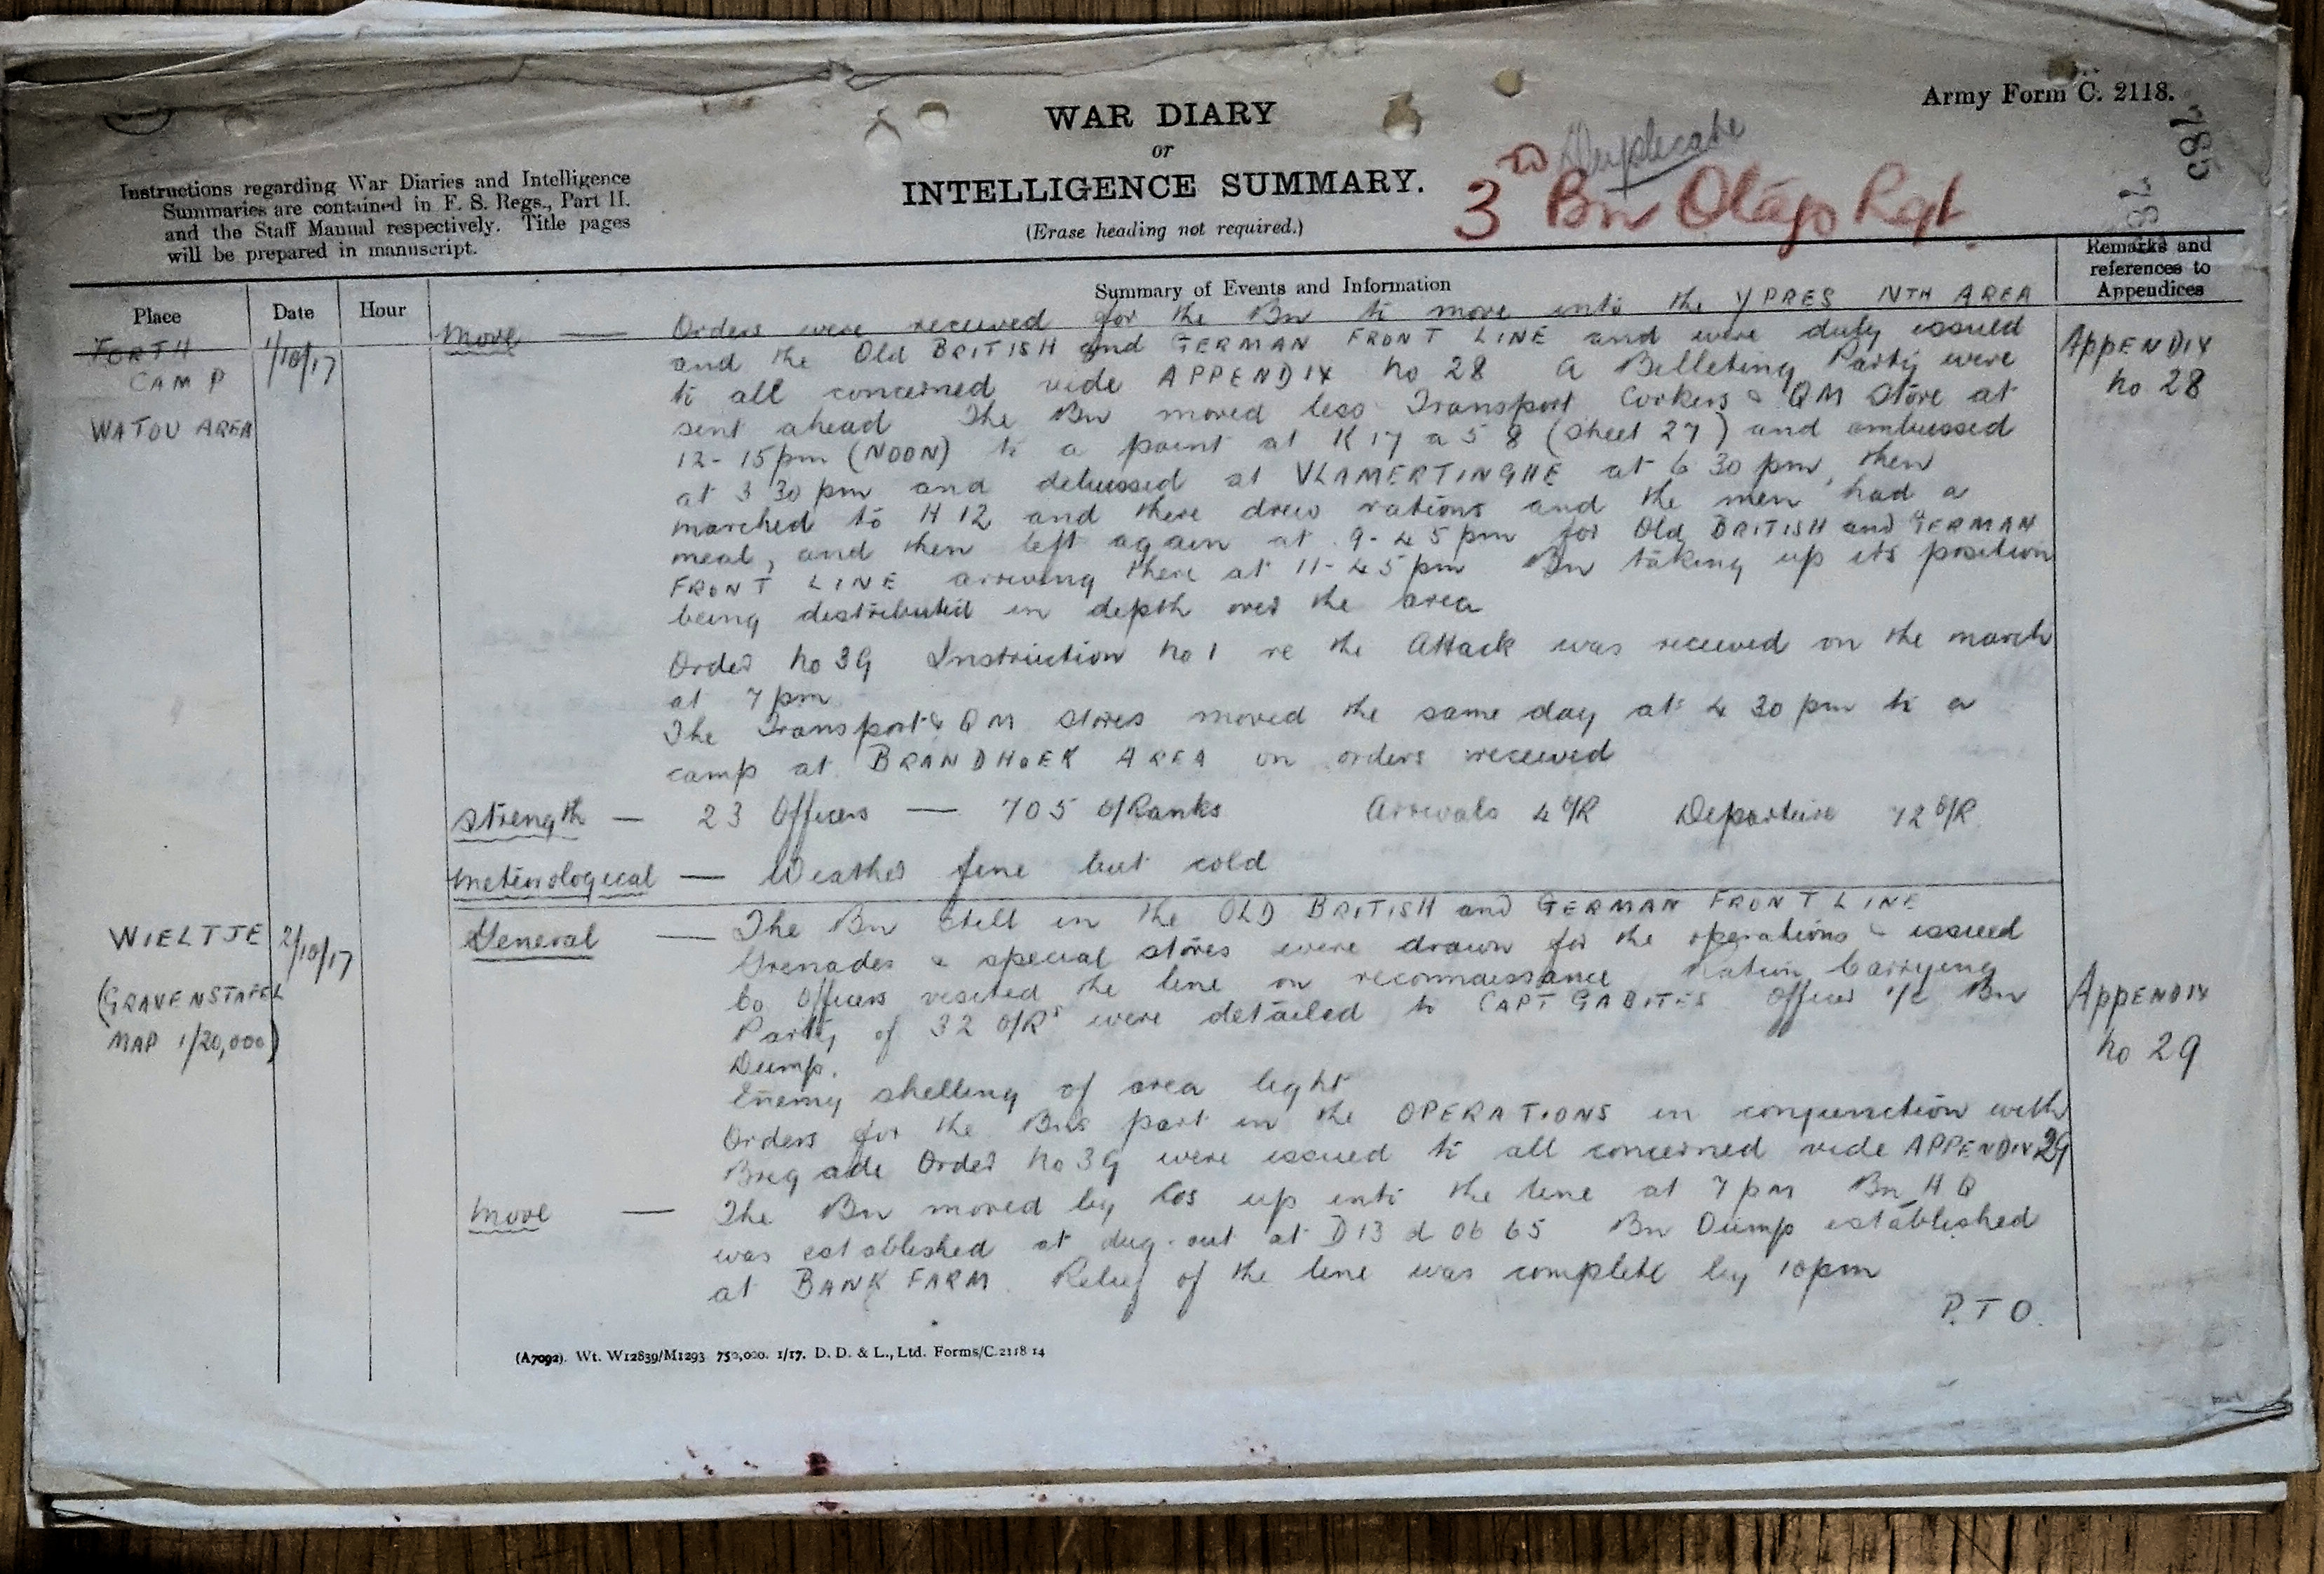 Army Form C. 2118.
WAR DIARY
or
INTELLIGENCE SUMMARY.
(Erase heading not required.)
Duplicate
3rd Bn Otago Regt.
785
Instructions regarding War Diaries and Intelligence
Summaries are contained in F. S. Regs., Part II.
and the Staff Manual respectively. Title pages
will be prepared in manuscript.
Place
Date
Hour
Summary of Events and Information
Remarks and
references to
Appendices
FORTH
CAMP
WATOU AREA
1/10/17
Move — Orders were received for the Bn to move into the YPRES NTH AREA
and the Old BRITISH and GERMAN FRONT LINE and were duly issued
to all concerned vide APPENDIX No 28 A Billeting Party were
sent ahead The Bn moved less Transport Cookers & QM Store at
12-15pm (NOON) to a point at K 17 a 5 8 (Sheet 27) and embussed
at 3 30 pm and debussed at VLAMERTINGHE at 6 30 pm, then
marched to H 12 and there drew rations and the men had a
meal, and then left again at 9-45pm for Old BRITISH and GERMAN
FRONT LINE arriving there at 11-45pm Bn taking up its position
being distributed in depth over the area
Order No 39 Instruction No 1 re the Attack was received on the march
at 7 pm
The Transport & QM Stores moved the same day at 4 30 pm to a
camp at BRANDHOEK AREA on orders received
APPENDIX
No 28
Strength — 23 Officers — 705 O/Ranks Arrivals 4 O/R Departure 72 O/R
Meteorological — Weather fine but cold
WIELTJE
(GRAVENSTAFEL
MAP 1/20,000)
2/10/17
General — The Bn still in the OLD BRITISH and GERMAN FRONT LINE
Grenades & special stores were drawn for the operations & issued
Co Officers visited the line on reconnaissance Ration Carrying
Party of 32 O/Rs were detailed to CAPT GABITES Officer i/c Bn
Dump.
Enemy shelling of area light
Orders for the Bns part in the OPERATIONS in conjunction with
Brigade Order No 39 were issued to all concerned vide APPENDIX 29
APPENDIX
No 29
Move — The Bn moved by Cos up into the line at 7 pm Bn H Q
was established at dug-out at D 13 d 06 65 Bn Dump established
at BANK FARM. Relief of the line was complete by 10pm
P.T.O.
(A7092). Wt. W12839/M1293 750,000. 1/17. D. D. & L., Ltd. Forms/C.2118 14